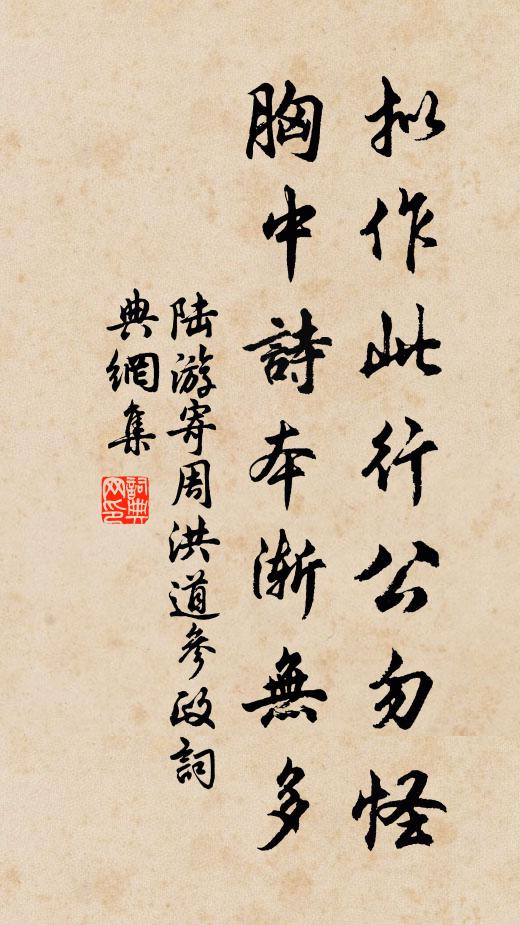 拟作此行公勿怪
胸中詩本渐無多
陆游寄周洪道參政詞
典網集
詞典
网印